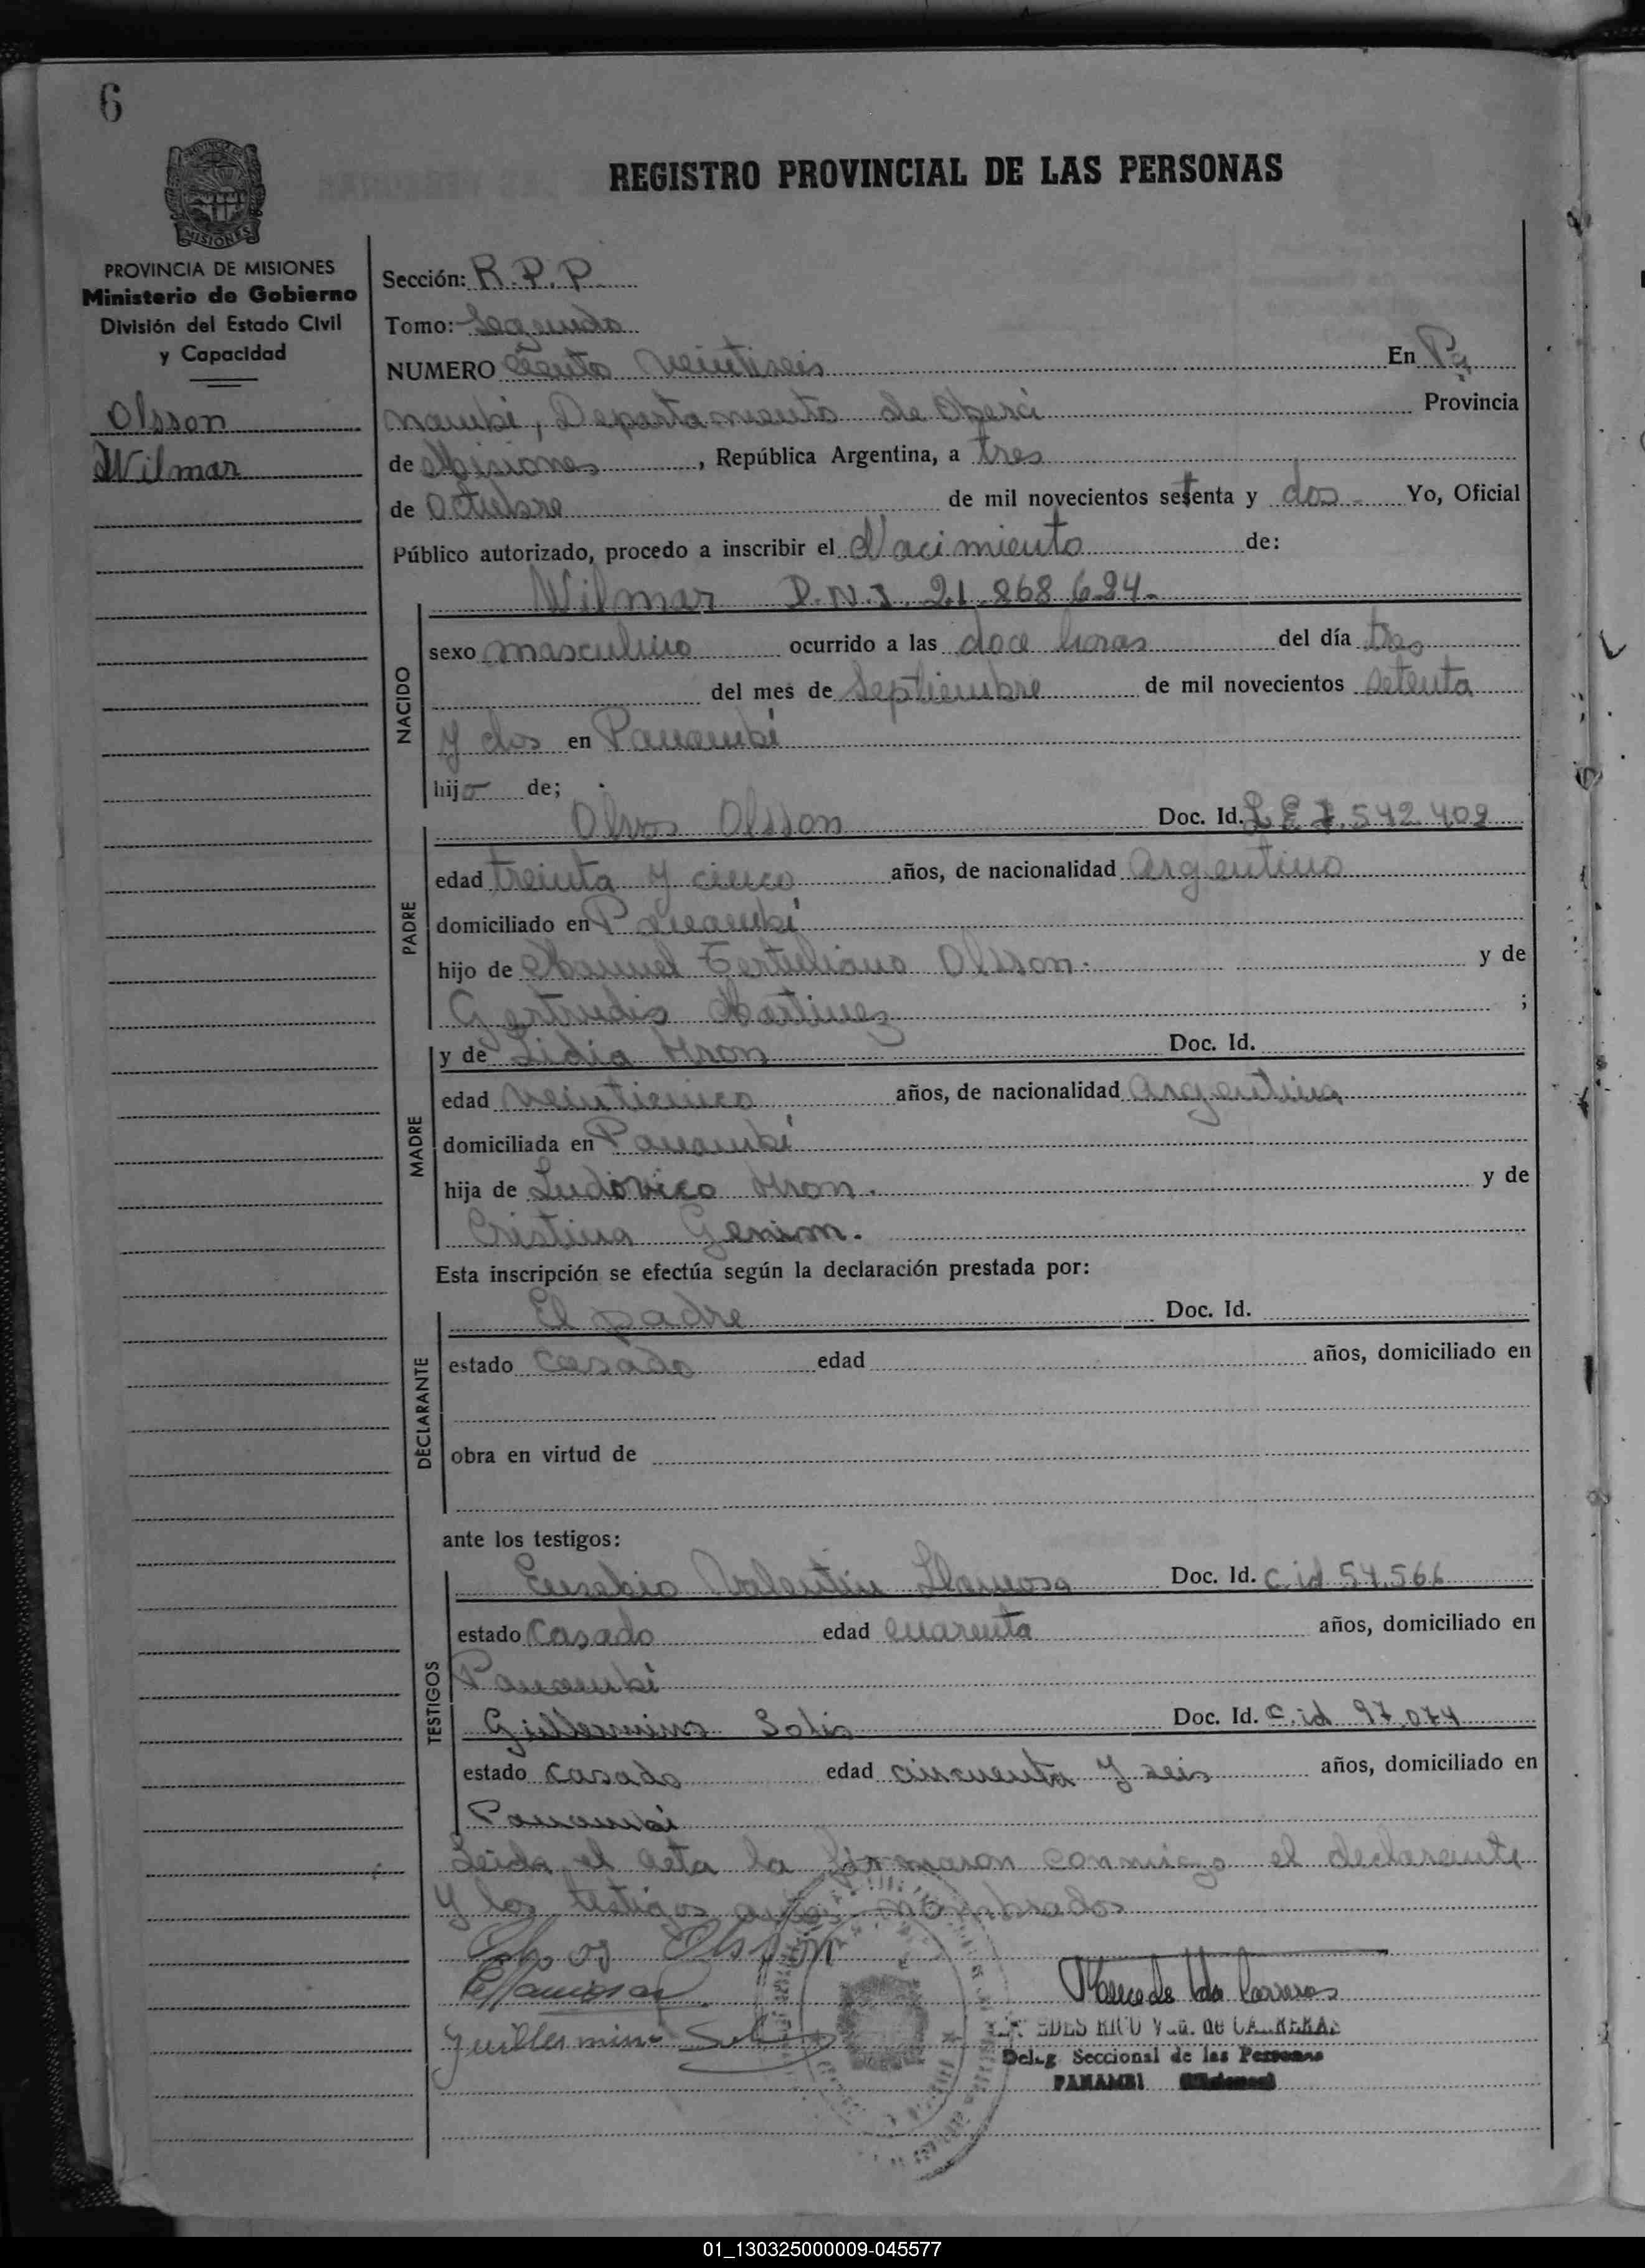 6
REGISTRO PROVINCIAL DE LAS PERSONAS
MISIONES
PROVINCIA DE MISIONES
Ministerio de Gobierno
División del Estado Civil
y Capacidad
Olsson
Wilmar
Sección: R.P.P
Tomo: Segundo
NUMERO Ciento veintiseis En Pa
nambi, Departamento de Oberá Provincia
de Misiones, República Argentina, a tres
de Octubre de mil novecientos setenta y dos - Yo, Oficial
Público autorizado, procedo a inscribir el Nacimiento de:
Wilmar D.N.I. 21.868.624.-
NACIDO
sexo masculino ocurrido a las doce horas del día tres
del mes de Septiembre de mil novecientos setenta
y dos en Panambí
hijo de;
PADRE
Olvos Olsson Doc. Id. L.E 7.542.409
edad treinta y cinco años, de nacionalidad Argentino
domiciliado en Panambí
hijo de Manuel Tertuliano Olsson. y de
Gertrudis Martinez ;
MADRE
y de Lidia Hron Doc. Id.
edad veinticinco años, de nacionalidad Argentina
domiciliada en Panambí
hija de Ludovico Hron. y de
Cristina
Esta inscripción se efectúa según la declaración prestada por:
DECLARANTE
El padre Doc. Id.
estado Casado edad años, domiciliado en
obra en virtud de
ante los testigos:
TESTIGOS
Eusebio Valentin Llamosa Doc. Id. C.id 54.566
estado Casado edad cuarenta años, domiciliado en
Panambí
Guillermino Solis Doc. Id. C.id 97.074
estado casado edad cincuenta y seis años, domiciliado en
Panambi
Leída el acta la firmaron conmigo el declarante
y los testigos nombrados
Olvos Olsson
Guillermino Solis
RICO Vda. de CARRERAS
Deleg Seccional de las Personas
PANAMBI (Misiones)
01_130325000009-045577